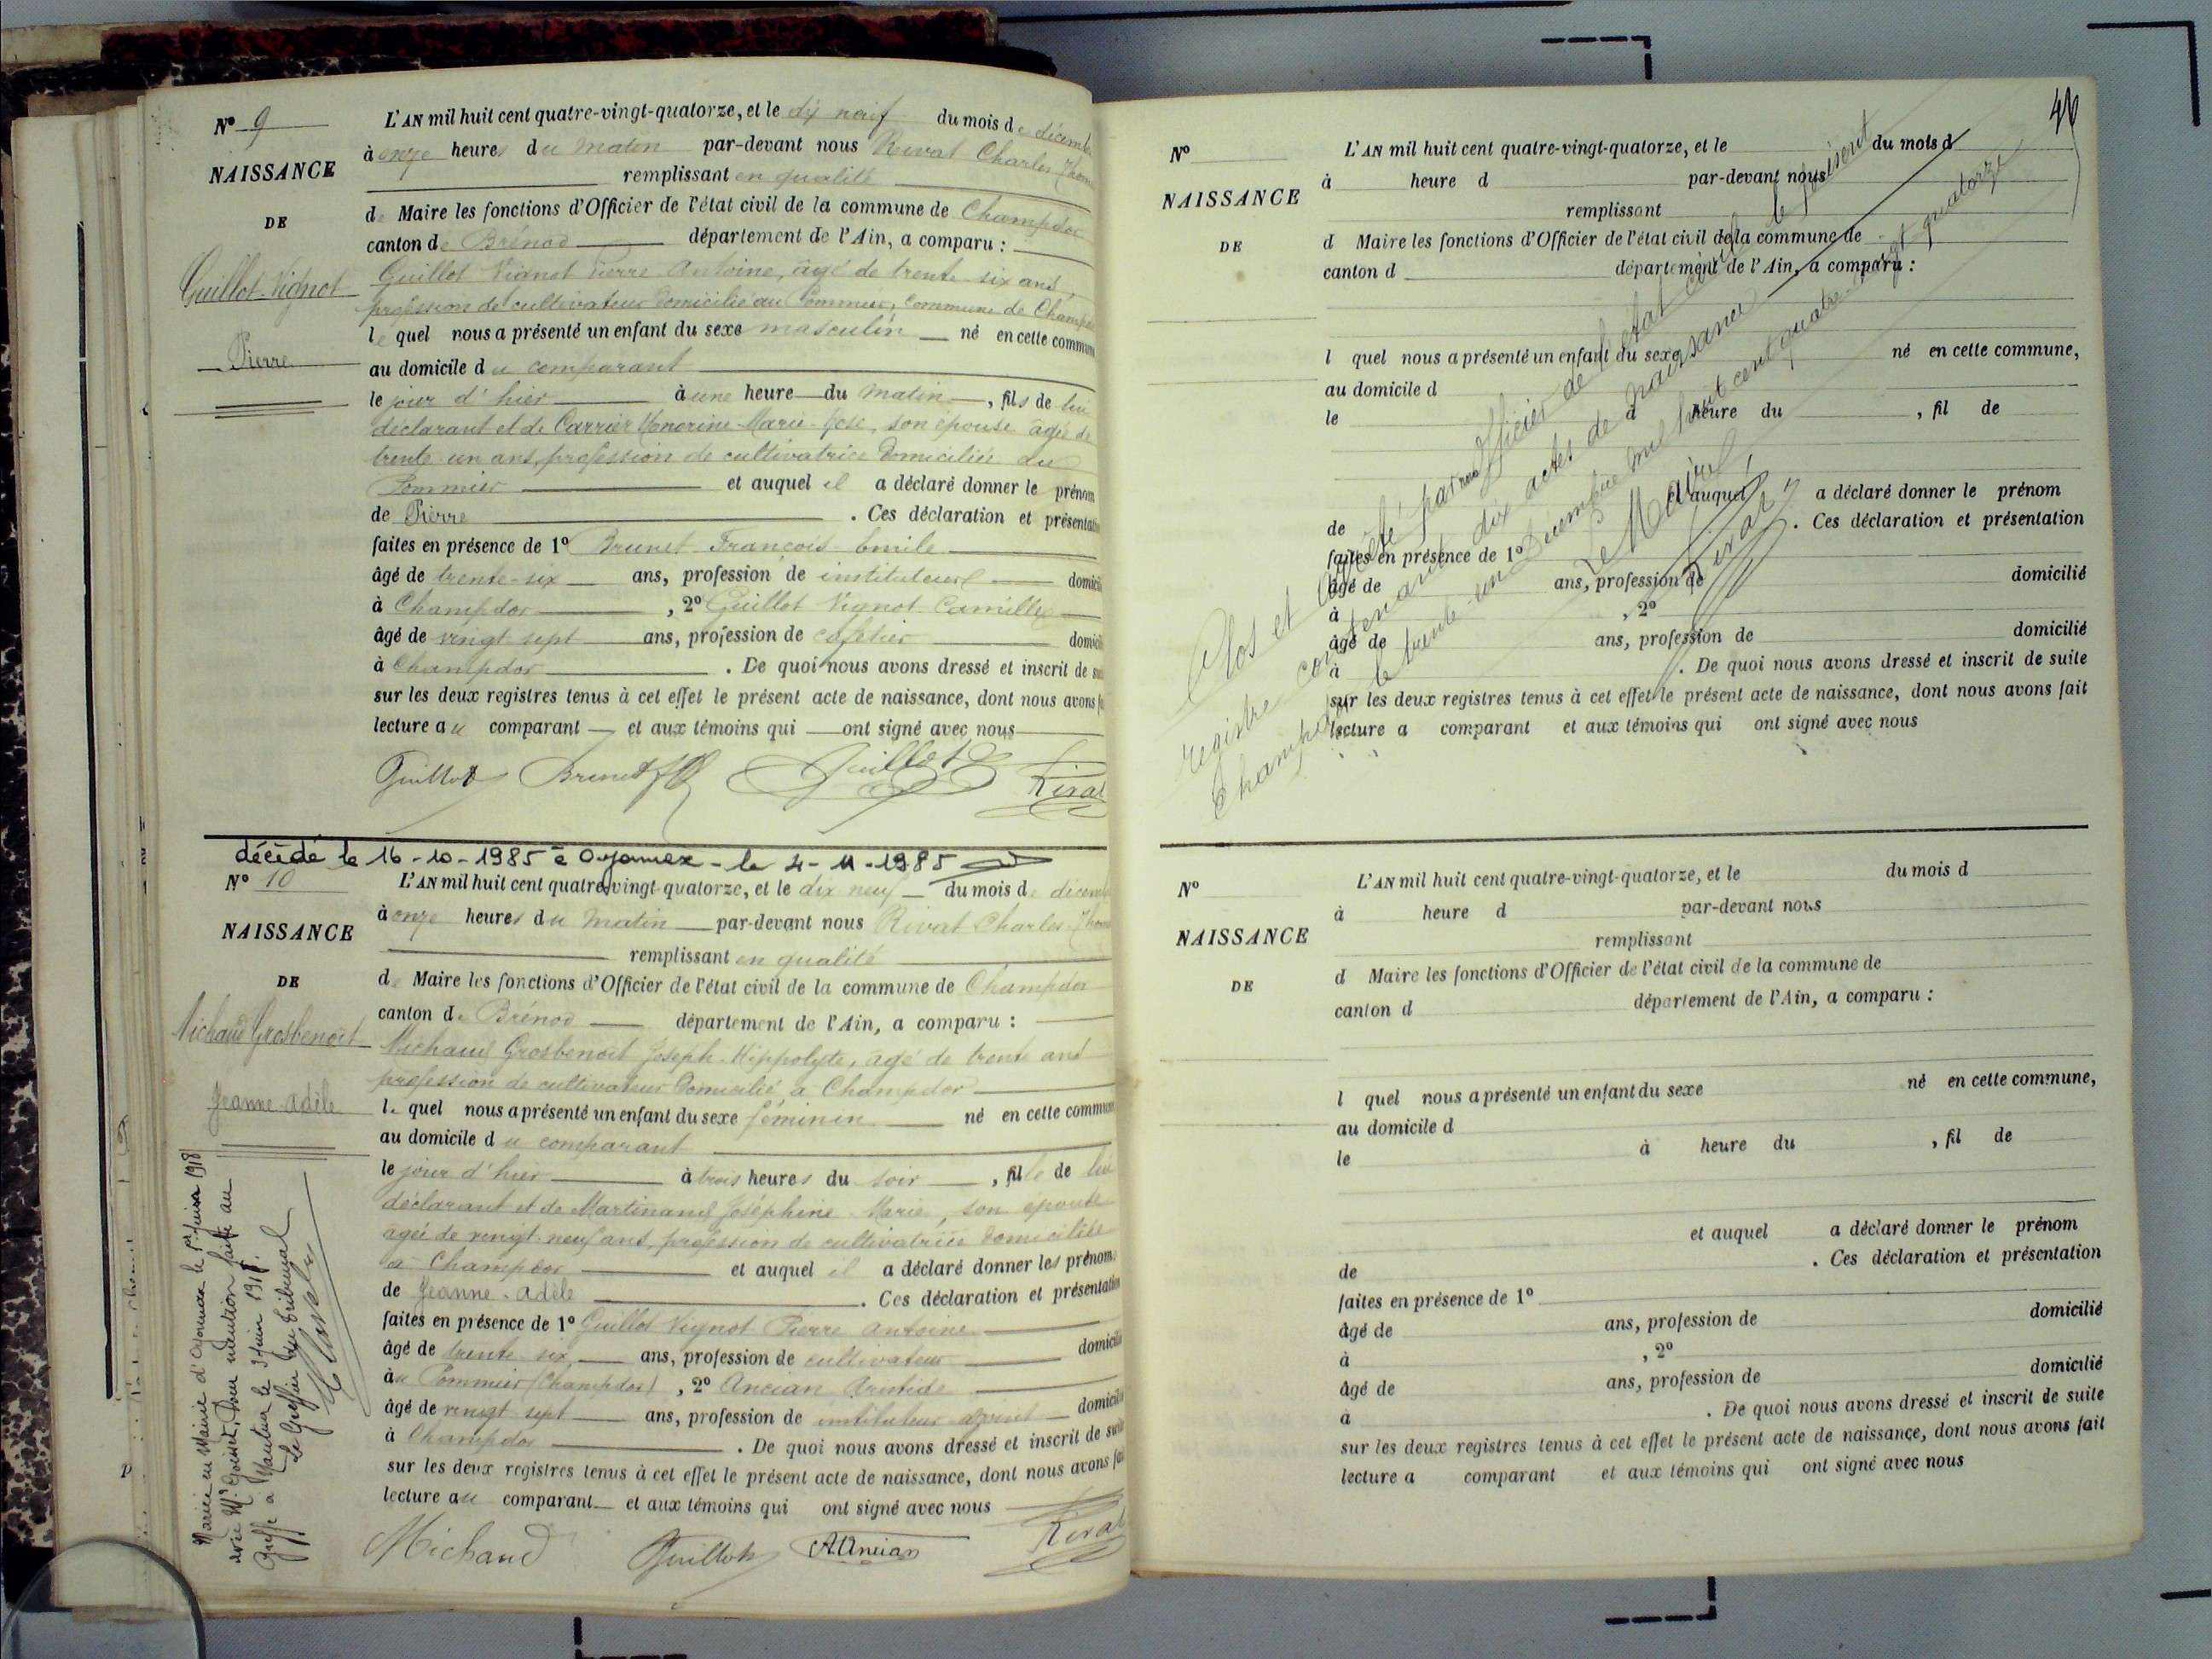 N° 9
NAISSANCE
DE
Guillot-Vignot
Pierre
L'AN mil huit cent quatre-vingt-quatorze, et le dix neuf du mois de décemb
à onze heures du matin par-devant nous Rivat Charles Thom
remplissant en qualité
de Maire les fonctions d'Officier de l'état civil de la commune de Champdor
canton de Brénod département de l'Ain, a comparu :
Guillot Vignot Pierre Antoine, âgé de trente six ans,
profession de cultivateur domicilié au Pommier, commune de Champdor
le quel nous a présenté un enfant du sexe masculin né en cette commune
au domicile du comparant
le jour d'hier à une heure du matin, fils de lui
déclarant et de Carrier Honorine Marie, son épouse âgée de
trente un ans, profession de cultivatrice domiciliée au
Pommier et auquel il a déclaré donner le prénom
de Pierre . Ces déclaration et présentation
faites en présence de 1° Brunet François Emile
âgé de trente-six ans, profession de instituteur domicilié
à Champdor , 2° Guillot Vignot Camille
âgé de vingt sept ans, profession de cafetier domicilié
à Champdor . De quoi nous avons dressé et inscrit de suite
sur les deux registres tenus à cet effet le présent acte de naissance, dont nous avons fait
lecture au comparant et aux témoins qui ont signé avec nous
Guillot Brunet Guillot Rivat
décédé le 16-10-1985 à Oyonnax - le 4-11-1985
N° 10
NAISSANCE
DE
Michaud Grosbenoit
Jeanne-Adèle
Mariée en Mairie d'Oyonnax le 1er juin 1918
avec Mr Goiset, Dont mention faite au
Greffe à Nantua le 3 juin 1918.
Le Greffier du tribunal
L'AN mil huit cent quatre-vingt-quatorze, et le dix neuf du mois de décemb
à onze heures du matin par-devant nous Rivat Charles Thom
remplissant en qualité
de Maire les fonctions d'Officier de l'état civil de la commune de Champdor
canton de Brénod département de l'Ain, a comparu :
Michaud Grosbenoit Joseph Hippolyte, âgé de trente ans
profession de cultivateur domicilié à Champdor
le quel nous a présenté un enfant du sexe féminin né en cette commune
au domicile du comparant
le jour d'hier à trois heures du soir, fille de lui
déclarant et de Martinand Joséphine Marie, son épouse
âgée de vingt-neuf ans, profession de cultivatrice domiciliée
à Champdor et auquel il a déclaré donner les prénoms
de Jeanne-Adèle . Ces déclaration et présentation
faites en présence de 1° Guillot Vignot Pierre Antoine
âgé de trente six ans, profession de cultivateur domicilié
au Pommier (Champdor) , 2° Ancian Aristide
âgé de vingt sept ans, profession de instituteur adjoint domicilié
à Champdor . De quoi nous avons dressé et inscrit de suite
sur les deux registres tenus à cet effet le présent acte de naissance, dont nous avons fait
lecture au comparant et aux témoins qui ont signé avec nous
Michaud Guillot A Ancian Rivat
N°
NAISSANCE
DE
L'AN mil huit cent quatre-vingt-quatorze, et le du mois d
à heure d par-devant nous
remplissant
d Maire les fonctions d'Officier de l'état civil de la commune de
canton d département de l'Ain, a comparu :
l quel nous a présenté un enfant du sexe né en cette commune,
au domicile d
le à heure du , fil de
et auquel a déclaré donner le prénom
de . Ces déclaration et présentation
faites en présence de 1°
âgé de ans, profession de domicilié
à , 2°
âgé de ans, profession de domicilié
à . De quoi nous avons dressé et inscrit de suite
sur les deux registres tenus à cet effet le présent acte de naissance, dont nous avons fait
lecture a comparant et aux témoins qui ont signé avec nous
Clos et arrêté par nous Officier de l'état civil le présent
registre contenant dix actes de naissance
Champdor le trente-un Décembre mil huit cent quatre-vingt quatorze
Le Maire,
Rivat
N°
NAISSANCE
DE
L'AN mil huit cent quatre-vingt-quatorze, et le du mois d
à heure d par-devant nous
remplissant
d Maire les fonctions d'Officier de l'état civil de la commune de
canton d département de l'Ain, a comparu :
l quel nous a présenté un enfant du sexe né en cette commune,
au domicile d
le à heure du , fil de
et auquel a déclaré donner le prénom
de . Ces déclaration et présentation
faites en présence de 1°
âgé de ans, profession de domicilié
à , 2°
âgé de ans, profession de domicilié
à . De quoi nous avons dressé et inscrit de suite
sur les deux registres tenus à cet effet le présent acte de naissance, dont nous avons fait
lecture a comparant et aux témoins qui ont signé avec nous